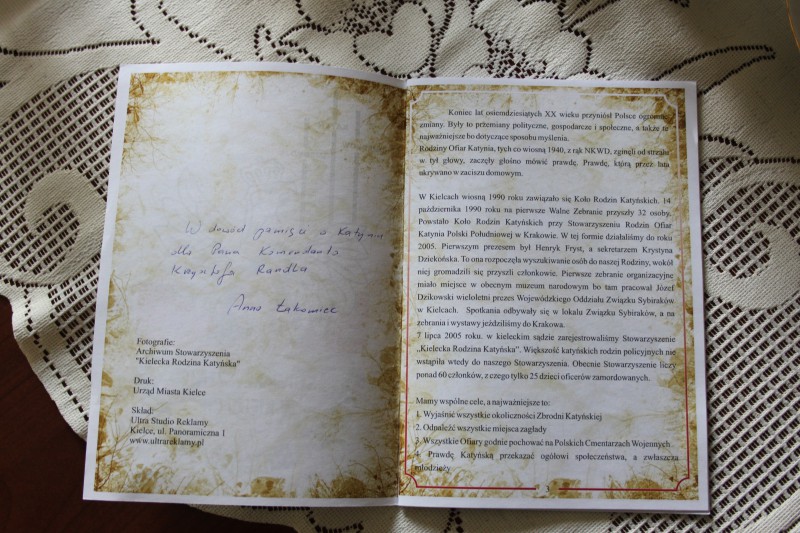 W dowód pamięci o Katyniu
dla Pana Komendanta
Krzysztofa
Anna Łakomiec
Fotografie:
Archiwum Stowarzyszenia
"Kielecka Rodzina Katyńska"
Druk:
Urząd Miasta Kielce
Skład:
Ultra Studio Reklamy
Kielce, ul. Panoramiczna 1
www.ultrareklamy.pl
Koniec lat osiemdziesiątych XX wieku przyniósł Polsce ogromne
zmiany. Były to przemiany polityczne, gospodarcze i społeczne, a także te
najważniejsze bo dotyczące sposobu myślenia.
Rodziny Ofiar Katynia, tych co wiosną 1940, z rąk NKWD, zginęli od strzału
w tył głowy, zaczęły głośno mówić prawdę. Prawdę, którą przez lata
skrywano w zaciszu domowym.
W Kielcach wiosną 1990 roku zawiązało się Koło Rodzin Katyńskich. 14
października 1990 roku na pierwsze Walne Zebranie przyszły 32 osoby.
Powstało Koło Rodzin Katyńskich przy Stowarzyszeniu Rodzin Ofiar
Katynia Polski Południowej w Krakowie. W tej formie działaliśmy do roku
2005. Pierwszym prezesem był Henryk Fryst, a sekretarzem Krystyna
Dziekońska. To ona rozpoczęła wyszukiwanie osób do naszej Rodziny, wokół
niej gromadzili się przyszli członkowie. Pierwsze zebranie organizacyjne
miało miejsce w obecnym muzeum narodowym bo tam pracował Józef
Dzikowski wieloletni prezes Wojewódzkiego Oddziału Związku Sybiraków
w Kielcach. Spotkania odbywały się w lokalu Związku Sybiraków, a na
zebrania i wystawy jeździliśmy do Krakowa.
7 lipca 2005 roku. w kieleckim sądzie zarejestrowaliśmy Stowarzyszenie
„Kielecka Rodzina Katyńska”. Większość katyńskich rodzin policyjnych nie
wstąpiła wtedy do naszego Stowarzyszenia. Obecnie Stowarzyszenie liczy
ponad 60 członków, z czego tylko 25 dzieci oficerów zamordowanych.
Mamy wspólne cele, a najważniejsze to:
1. Wyjaśnić wszystkie okoliczności Zbrodni Katyńskiej
2. Odpaleźć wszystkie miejsca zagłady
3. Wszystkie Ofiary godnie pochować na Polskich Cmentarzach Wojennych
4. Prawdę Katyńską przekazać ogółowi społeczeństwa, a zwłaszcza
młodzieży